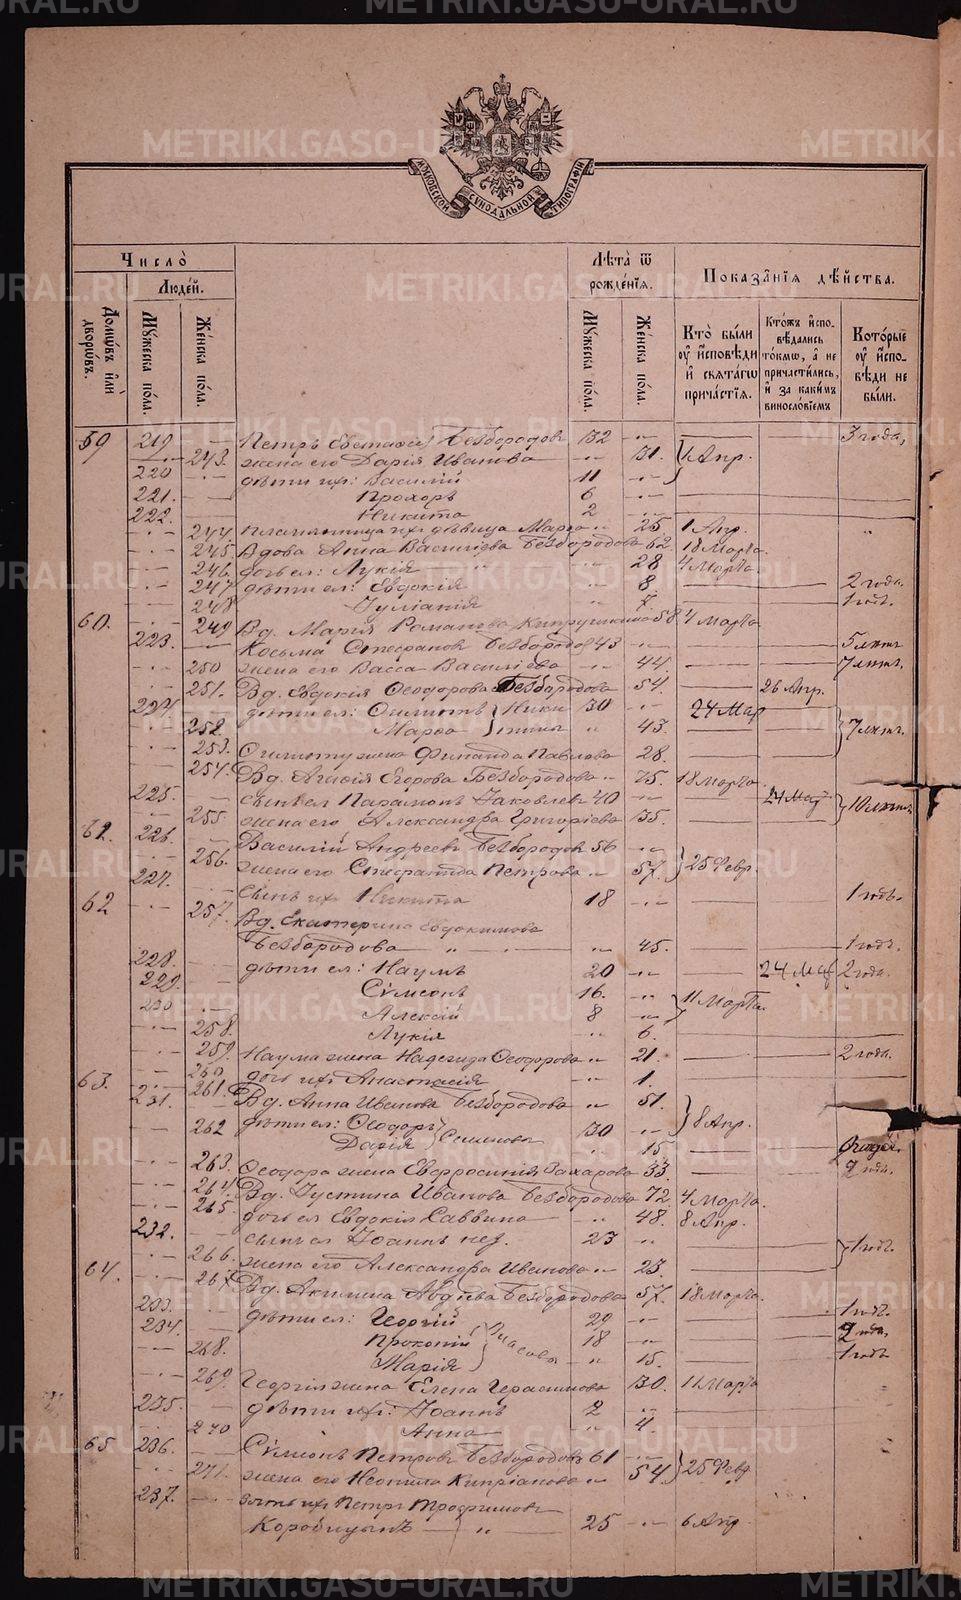 МОСКОВСКОЙ СУНОДАЛЬНОЙ ТИПОГРАФІИ
Число̀
Людéй.
Домѡвъ и҆лѝ дворѡвъ.
Мꙋжеска пóла.
Жéнска пóла.
Лѣ́та ѿ рождéнїѧ.
Мꙋжеска пóла.
Жéнска пóла.
Показáнїѧ дѣ́йства.
Ктò бы́ли ᲂу҆ и҆сповѣди и҆ свѧтáгѡ причáстїѧ.
Ктóжъ и҆спо-
вѣдались
тóкмѡ, а҆ не
причастились,
и҆ за какимъ
винослóвїемъ
Котóрые
ᲂу҆ и҆спо-
вѣди не
бы́ли.
59 219 — Петръ Безбородовъ 32 3 года,
— 243. жена его Дарія Иванова 31. Апр.
220 дѣти ихъ: Василій 11
221. Прохоръ 6
222. Никита 2
244. племянница ихъ дѣвица 25 1 Апр.
245. Вдова Анна Василіева Безбородова 62. 18 Марта
246. дочь ея: Лукія 28 4 Марта
247 дѣти ея: Евдокія 8 2 года.
248 Іуліанія 7. 1 годъ.
60. 249 Вд. Марія Романова 58 4 Марта
223. Косьма Стефановъ Безбородов 43 5 лѣтъ
250 жена его Васса Василіева 44. 7 лѣтъ.
251. Вд. Евдокія Ѳеодорова Безбородова 54. 26 Апр.
224. дѣти ея: 30 24 Мар
252. 43. 7 лѣтъ.
253. жена Павлова 28.
254. Вд. Егорова Безбородова 75. 18 Марта
225. сынъ ея Парамонъ Іаковлевъ 40 24 Мар
255. жена его Александра Григоріева 35. 10 лѣтъ
61. 226. Василій Андреевъ Безбородовъ 56
256. жена его Степанида Петрова 57. 25 Февр.
227. сынъ ихъ Никита 18 1 годъ.
62 257. Вд. Екатерина Евдокимова
Безбородова 45. 1 годъ.
228. дѣти ея: Наумъ 20 24 Мар 2 года.
229. Сѵмеонъ 16. 11 Марта
230 Алексій 8
258. Лукія 6.
259. Наума жена Надежда Ѳеодорова 21. 2 года.
260 дочь ихъ Анастасія 1.
63. 261. Вд. Анна Иванова Безбородова 51.
231. дѣти ея: Ѳеодоръ 30 8 Апр.
262 Дарія Семеновы 15
263. Ѳеодора жена Евфросинія Захарова 33. 2 года.
264. Вд. Іустина Иванова Безбородова 72 4 Марта
265. дочь ея Евдокія Саввина 48. 8 Апр.
232. сынъ ея Іоаннъ нез. 23
266. жена его Александра Иванова 23. 1 годъ.
64. 267. Вд. Акилина Безбородова 57. 18 Марта
233. дѣти ея: Георгій 29 1 годъ.
234. Прокопій 18 2 года.
268. Марія 15. 1 годъ
269. Георгія жена Елена Герасимова 30. 11 Марта
235. дѣти ихъ: Іоаннъ 2
270 Анна 4
65. 236. Сѵмеонъ Петровъ Безбородовъ 61
271. жена его Неонила Кипріанова 54 25 Февр
237. зять ихъ Петръ Трофимовъ
Коробицынъ 25 6 Апр.
METRIKI.GASO-URAL.RU